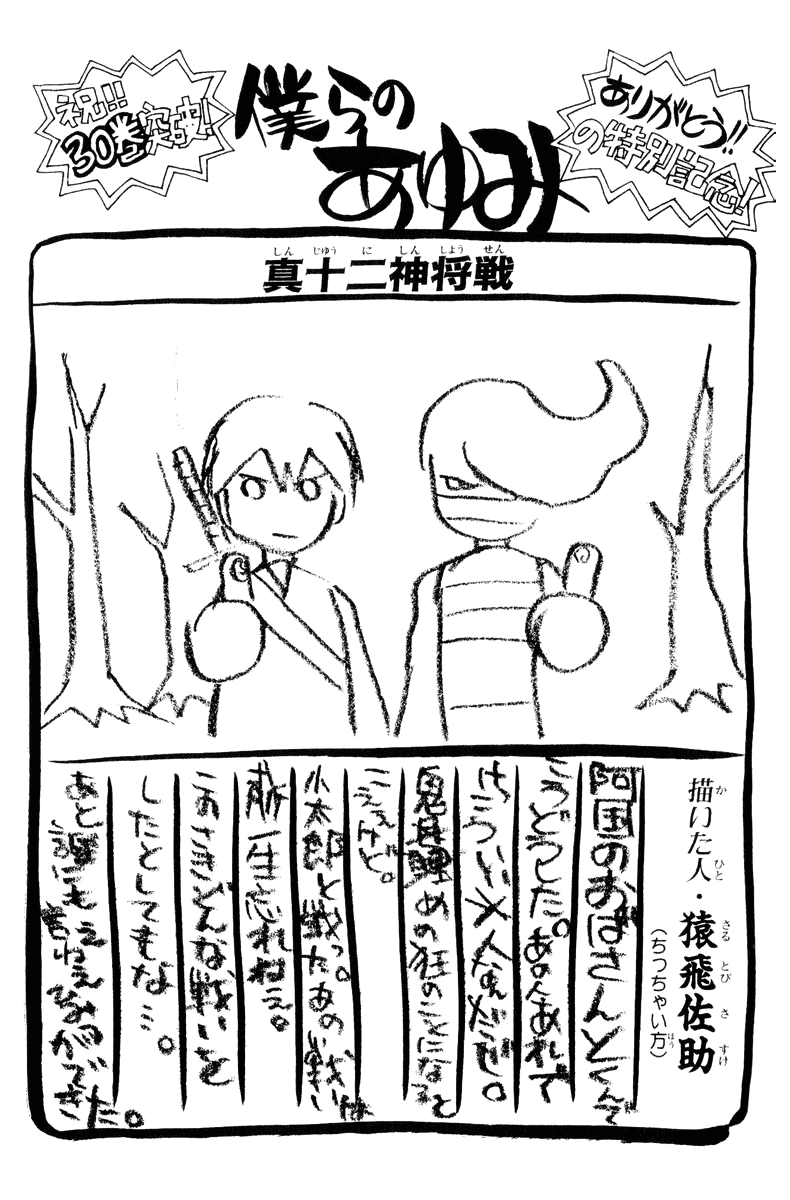 祝!!
30巻突破!
僕らの
あゆみ
ありがとう!!
の特別記念!
真十二神将戦
描いた人・猿飛佐助
(ちっちゃい方)
阿国のおばさんとくんで
こうどうした。あの人あれで
けっこういい人なんだぜ。
の狂のことになると
こえぇけど。
小太郎と戦った。あの戦いは
一生忘れねェ。
このさきどんな戦いを
したとしてもな…。
あと誰にも言えねえひみつができた。